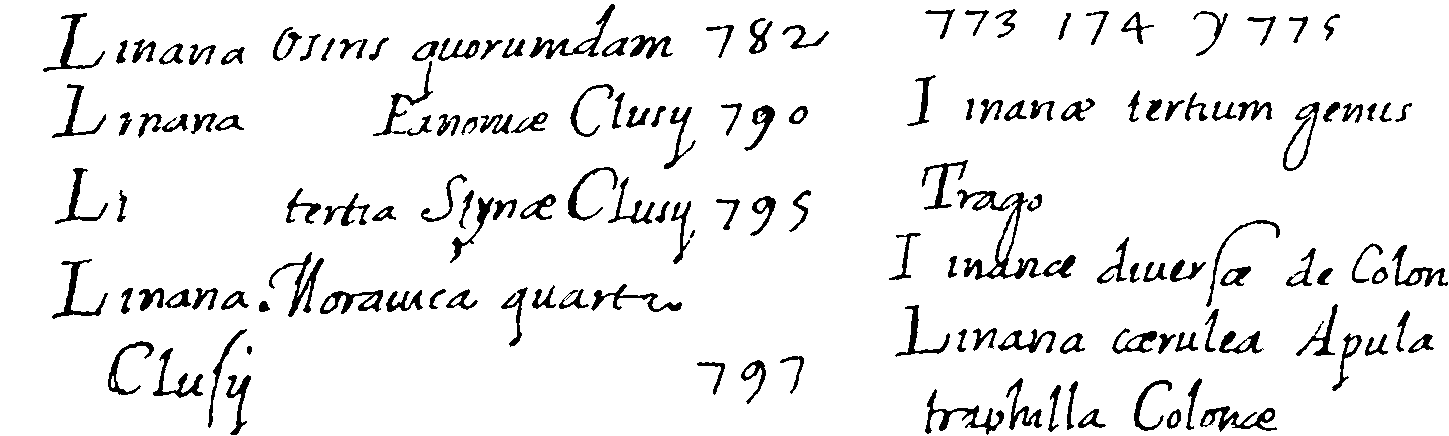 Linaria Osiris quorumdam 782
Linaria Clusij 790
Li tertia Clusij 795
Linaria Morauica quarta
Clusij 797
773 174 y 775
inariæ tertium genus
Trago
inariæ diuersæ de Colon
Linaria cærulea Apula
Colonæ